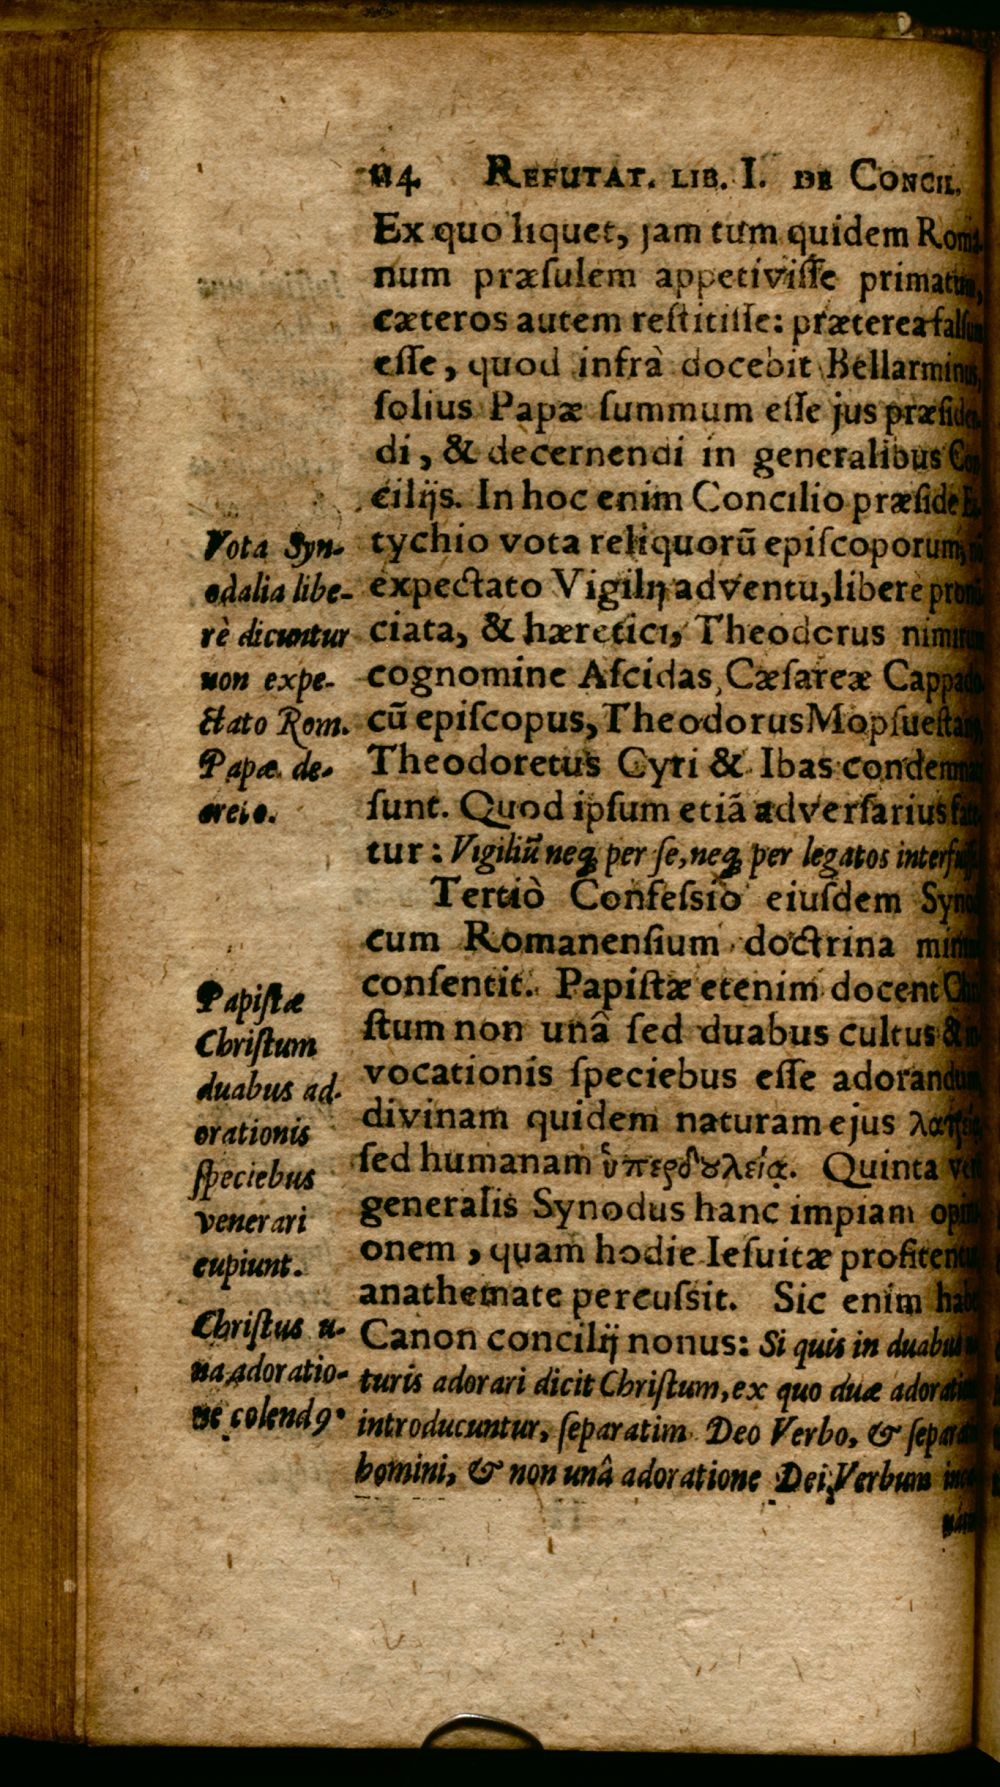 114 REFUTAT. LIB. I. DE CONCIL.
Ex quo liquet, jam tum quidem Roma-
num præſulem appetiviſſe primatum,
cæteros autem reſtitiſſe: præterea falſum
eſſe, quod infrà docebit Bellarminus,
ſolius Papæ ſummum eſſe jus præſiden-
di, & decernendi in generalibus Con-
cilijs. In hoc enim Concilio præſide Eu-
tychio vota reliquorũ epiſcoporum,
expectato Vigilij adventu, liberè pronu-
ciata, & hæretici, Theodorus nimirum
cognomine Aſcidas, Cæſareæ Cappado-
cũ epiſcopus, Theodorus Mopſueſtanus,
Theodoretus Cyri & Ibas condemnati
ſunt. Quod ipſum etiã adverſarius fate-
tur: Vigiliũ neq; per ſe, neq; per legatos interfuiſſe.
Tertiò Confeſsio eiuſdem Synodi
cum Romanenſium doctrina minimè
conſentit. Papiſtæ etenim docent Chri-
ſtum non unâ ſed duabus cultus & in-
vocationis ſpeciebus eſſe adorandum,
divinam quidem naturam ejus λατρείᾳ
ſed humanam ὑπερδουλείᾳ. Quinta verò
generalis Synodus hanc impiam opini-
onem, quam hodie Ieſuitæ profitentur
anathemate percuſsit. Sic enim habet
Canon concilij nonus: Si quis in duabus na-
turis adorari dicit Chriſtum, ex quo duæ adorationes
introducuntur, ſeparatim Deo Verbo, & ſeparatim
homini, & non unâ adoratione Dei Verbum incar-
natum
Vota Syn-
odalia libe-
rè dicuntur
non expe-
ctato Rom.
Papæ de-
creto.
Papiſtæ
Chriſtum
duabus ad-
orationis
ſpeciebus
venerari
cupiunt.
Chriſtus u-
na adoratio-
ne colendꝰ.